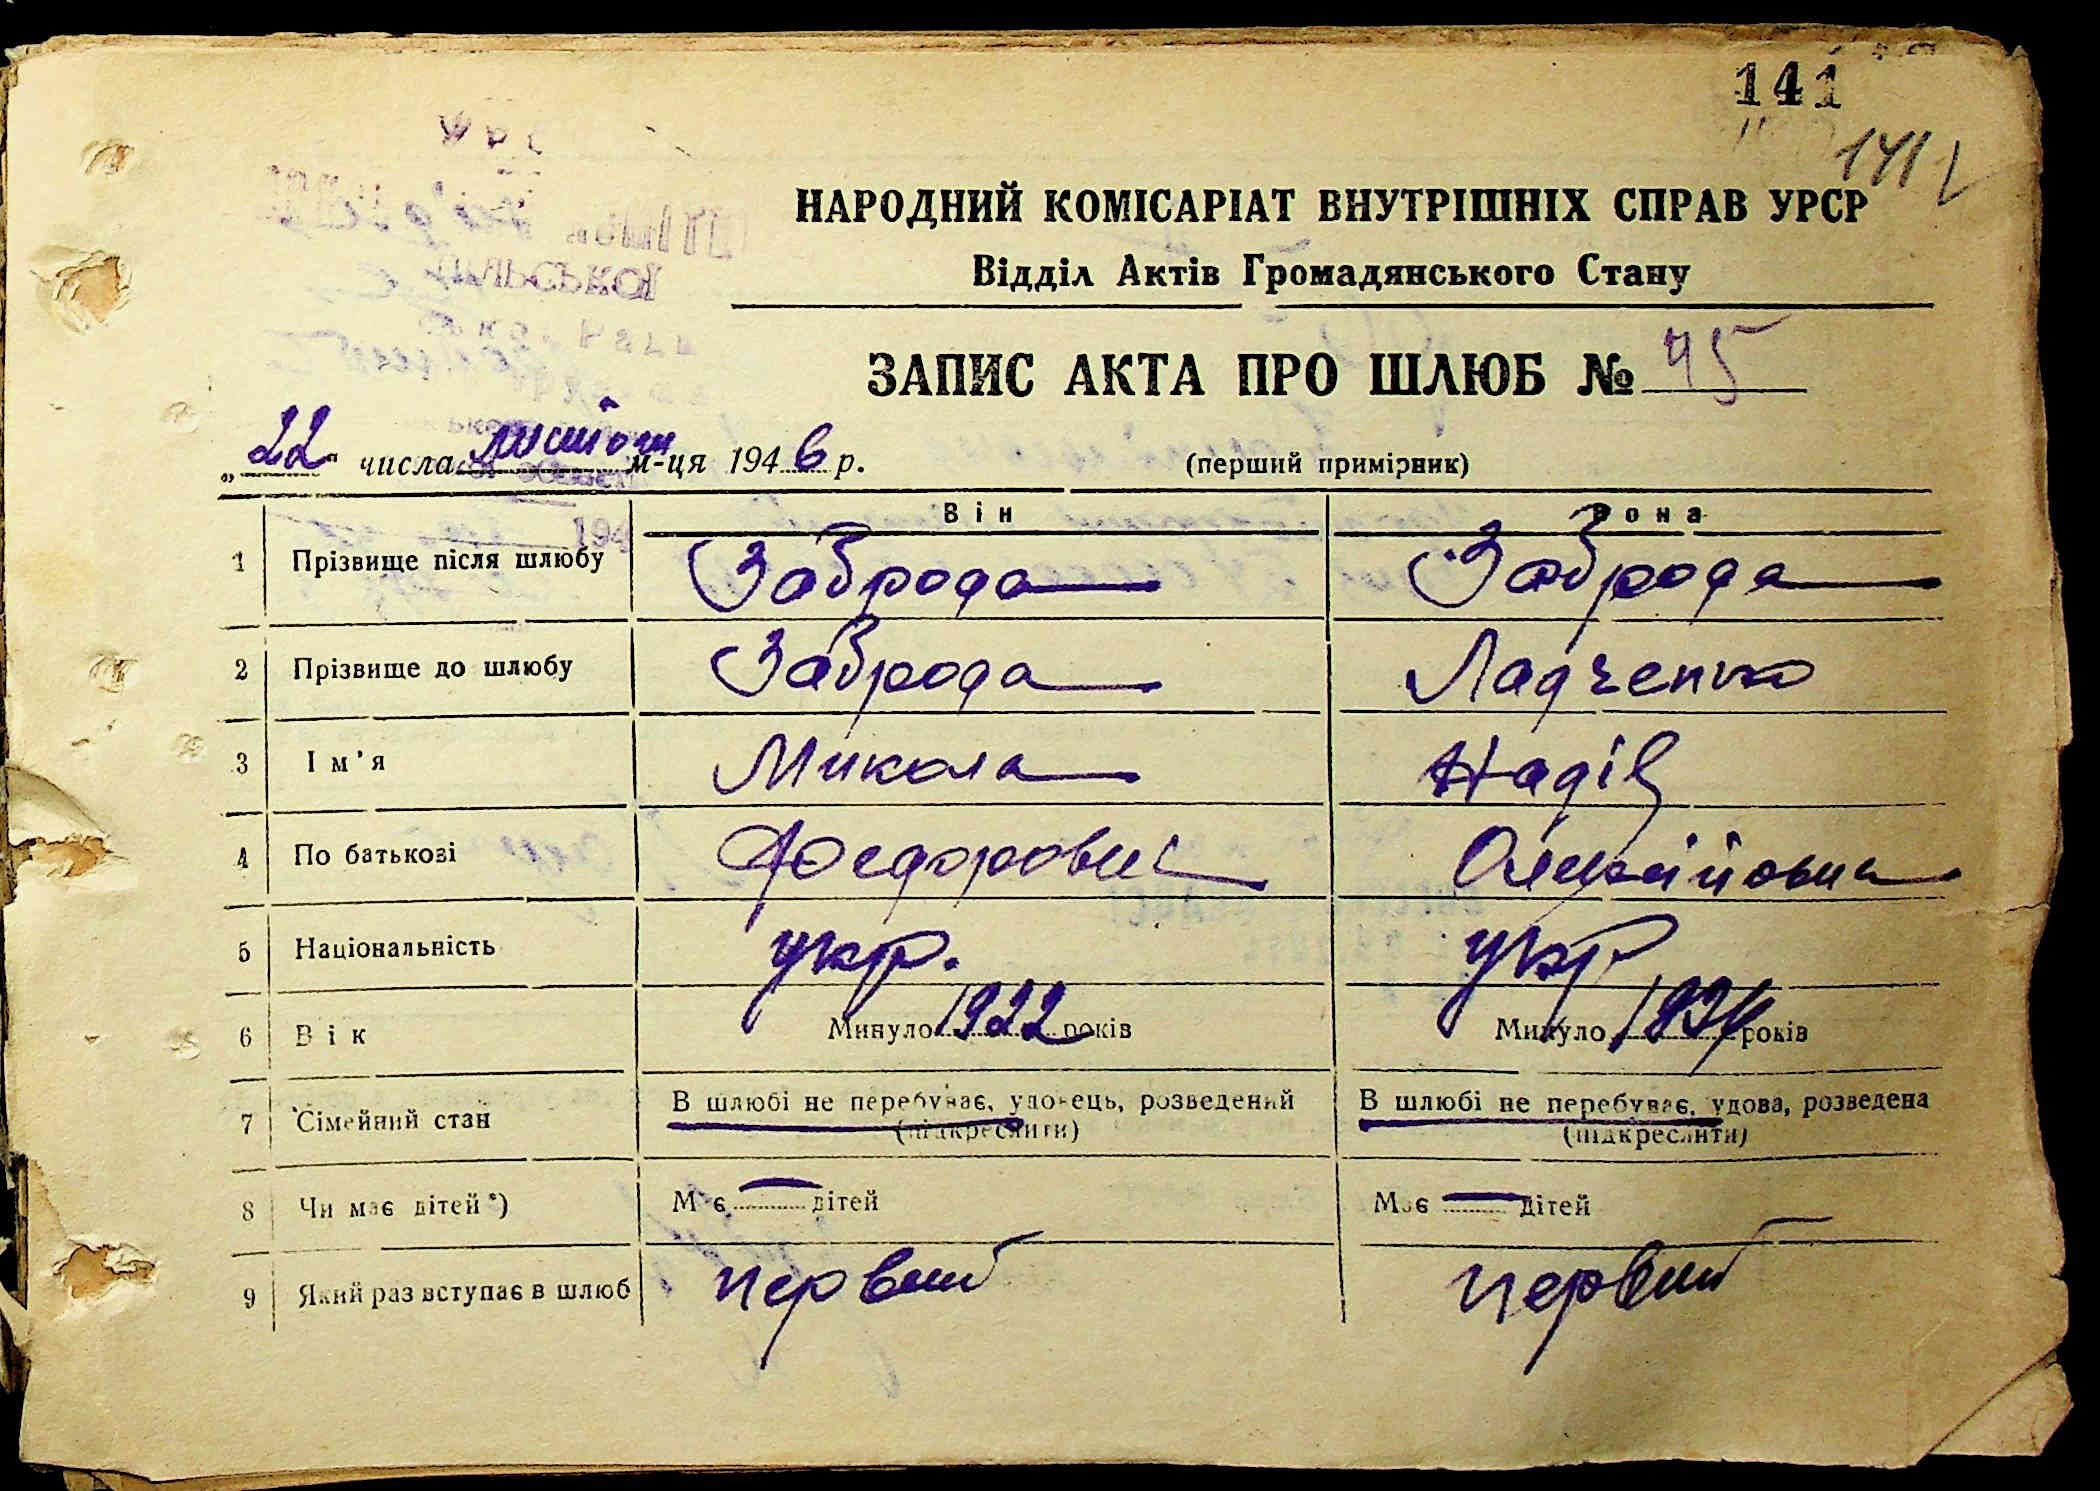 141
141
НАРОДНИЙ КОМІСАРІАТ ВНУТРІШНІХ СПРАВ УРСР
Відділ Актів Громадянського Стану
ЗАПИС АКТА ПРО ШЛЮБ № 75
„22“ числа листопа м-ця 1946 р. (перший примірник)
Він Вона
1 Прізвище після шлюбу Заброда Заброда
2 Прізвище до шлюбу Заброда Ладченко
3 Ім'я Микола Надія
4 По батькові Федорович Олексіїовна
5 Національність укр. укр
6 Вік Минуло 1922 років Минуло років
7 Сімейний стан В шлюбі не перебуває, удовець, розведений В шлюбі не перебуває, удова, розведена
(підкреслити) (підкреслити)
8 Чи має дітей*) Має — дітей Має — дітей
9 Який раз вступає в шлюб первий первий